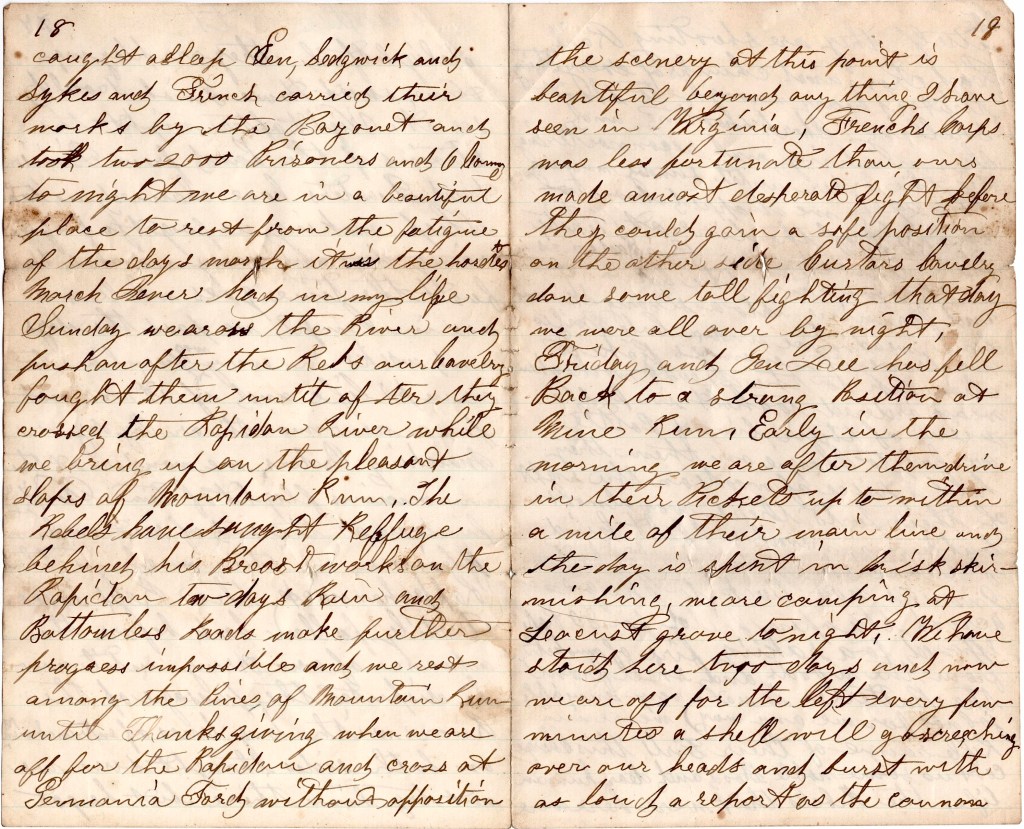 18
caught asleep Gen, Sedgwick and
Sykes and French carried their
works by the Bayonet and
took two 2000 Prizoners and 6
to night we are in a beautiful
place to rest from the fatigue
of the days march, it is the
March I ever had in my life
Sunday we are on the River and
push on after the Rebs our Cavelry
fought them until after they
crossed the Rapidan River while
we bring up on the pleasant
slopes of Mountain Run, The
Rebels have saught Reffuge
behind his Breast works on the
Rapidan two days Rain and
Bottomless Roads make further
progress impossible and we rest
among the Pines, of Mountain Run
until Thanksgiving when we are
off for the Rapidan and cross at
Germania Ford without opposition
19
the scenery at this point is
beautiful beyond any thing I have
seen in Virginia, Frenchs Corps
was less fortunate than ours
made amost desperate fight before
they could gain a safe position
on the other side, Custars Cavelry
done some tall fighting that day
we were all over by night,
Friday and Gen Lee has fell
Back to a strong Position at
Mine Run, Early in the
morning we are after them drive
in their Pickets up to within
a mile of their main line and
the day is spent in brisk skir-
mishing, we are camping at
Leacust grove to night, We have
staid here two days and now
we are off for the left every few
minutes a shell will go screaching
over our heads and burst with
as loud a report as the cannons